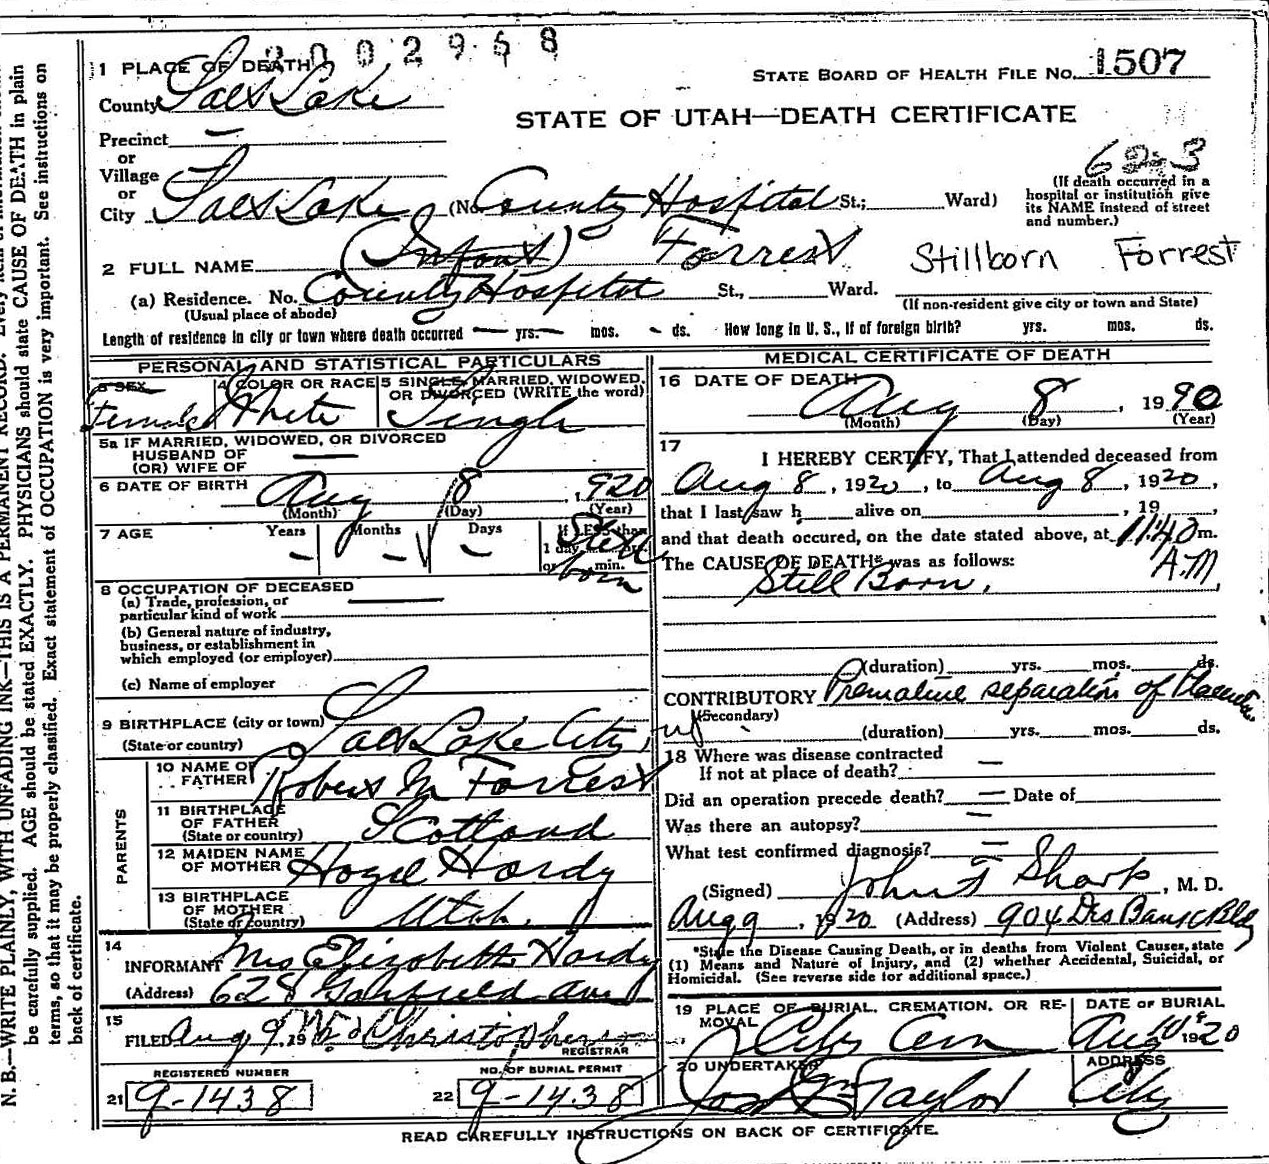 2002958
1 PLACE OF DEATH
STATE BOARD OF HEALTH FILE No. 1507
County Salt Lake
STATE OF UTAH—DEATH CERTIFICATE
Precinct —
or
Village
or
City Salt Lake (No. County Hospital St.; Ward)
62-3
(If death occurred in a hospital or institution give its NAME instead of street and number.)
2 FULL NAME (Infant) Forrest Stillborn Forrest
(a) Residence. No. County Hospital St., Ward.
(Usual place of abode) (If non-resident give city or town and State)
Length of residence in city or town where death occurred — yrs. — mos. - ds. How long in U. S., if of foreign birth? yrs. mos. ds.
PERSONAL AND STATISTICAL PARTICULARS
3 SEX Female
4 COLOR OR RACE White
5 SINGLE, MARRIED, WIDOWED, OR DIVORCED (WRITE the word) Single
5a IF MARRIED, WIDOWED, OR DIVORCED
HUSBAND OF —
(OR) WIFE OF
6 DATE OF BIRTH Aug 8, 1920
(Month) (Day) (Year)
7 AGE Years Months Days If LESS than
— — — 1 day
or min.
Still born
8 OCCUPATION OF DECEASED
(a) Trade, profession, or
particular kind of work —
(b) General nature of industry,
business, or establishment in
which employed (or employer)
(c) Name of employer
9 BIRTHPLACE (city or town)
(State or country) Salt Lake City,
PARENTS
10 NAME OF FATHER Robert M Forrest
11 BIRTHPLACE OF FATHER (State or country) Scotland
12 MAIDEN NAME OF MOTHER Hazel Hardy
13 BIRTHPLACE OF MOTHER (State or country) Utah.
14
INFORMANT Mrs Elizabeth Hardy
(Address) 628 Ave
15
FILED Aug 9, 19
REGISTRAR
REGISTERED NUMBER
21 9-1438
NO. OF BURIAL PERMIT
22 9-1438
MEDICAL CERTIFICATE OF DEATH
16 DATE OF DEATH
Aug 8, 1920
(Month) (Day) (Year)
17
I HEREBY CERTIFY, That I attended deceased from
Aug 8, 1920, to Aug 8, 1920,
that I last saw h alive on , 19
and that death occured, on the date stated above, at 11:40 m.
A.M
The CAUSE OF DEATH* was as follows:
Still Born.
(duration) yrs. mos. ds.
CONTRIBUTORY Premature separation of Placenta
(Secondary)
(duration) yrs. mos. ds.
18 Where was disease contracted
If not at place of death? —
Did an operation precede death? — Date of
Was there an autopsy? —
What test confirmed diagnosis? —
(Signed) John F Sharp, M. D.
Aug 9, 1920 (Address) 904 Des Bank Bldg
*State the Disease Causing Death, or in deaths from Violent Causes, state
(1) Means and Nature of Injury, and (2) whether Accidental, Suicidal, or
Homicidal. (See reverse side for additional space.)
19 PLACE OF BURIAL, CREMATION, OR REMOVAL City Cem
DATE OF BURIAL Aug 10 1920
20 UNDERTAKER Taylor
ADDRESS City
READ CAREFULLY INSTRUCTIONS ON BACK OF CERTIFICATE.
N. B.—WRITE PLAINLY, WITH UNFADING INK—THIS IS A PERMANENT RECORD.
be carefully supplied. AGE should be stated EXACTLY. PHYSICIANS should state CAUSE OF DEATH in plain
terms, so that it may be properly classified. Exact statement of OCCUPATION is very important. See instructions on
back of certificate.